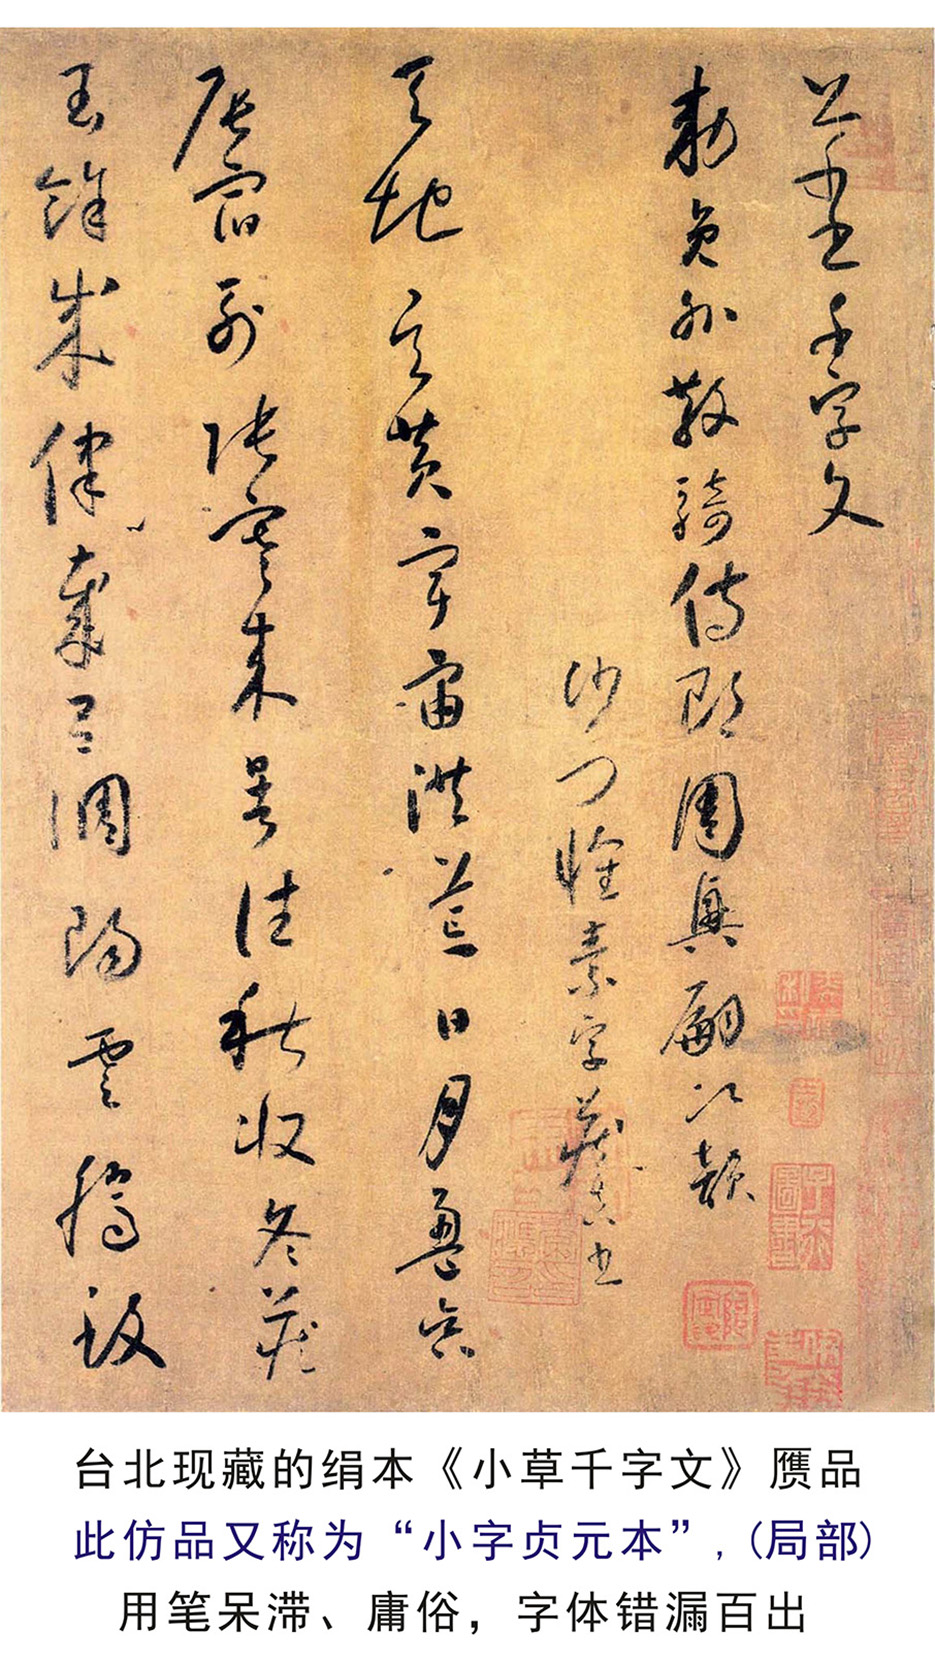 草書千字文
勅員外散騎侍郎周興嗣次韻
沙門懷素字藏真書
天地玄黃宇宙洪荒日月盈昃
辰宿列張寒来暑往秋收冬藏
閏餘成律歲呂調陽雲騰致
台北现藏的绢本《小草千字文》赝品
此仿品又称为“小字贞元本”,(局部)
用笔呆滞、庸俗，字体错漏百出